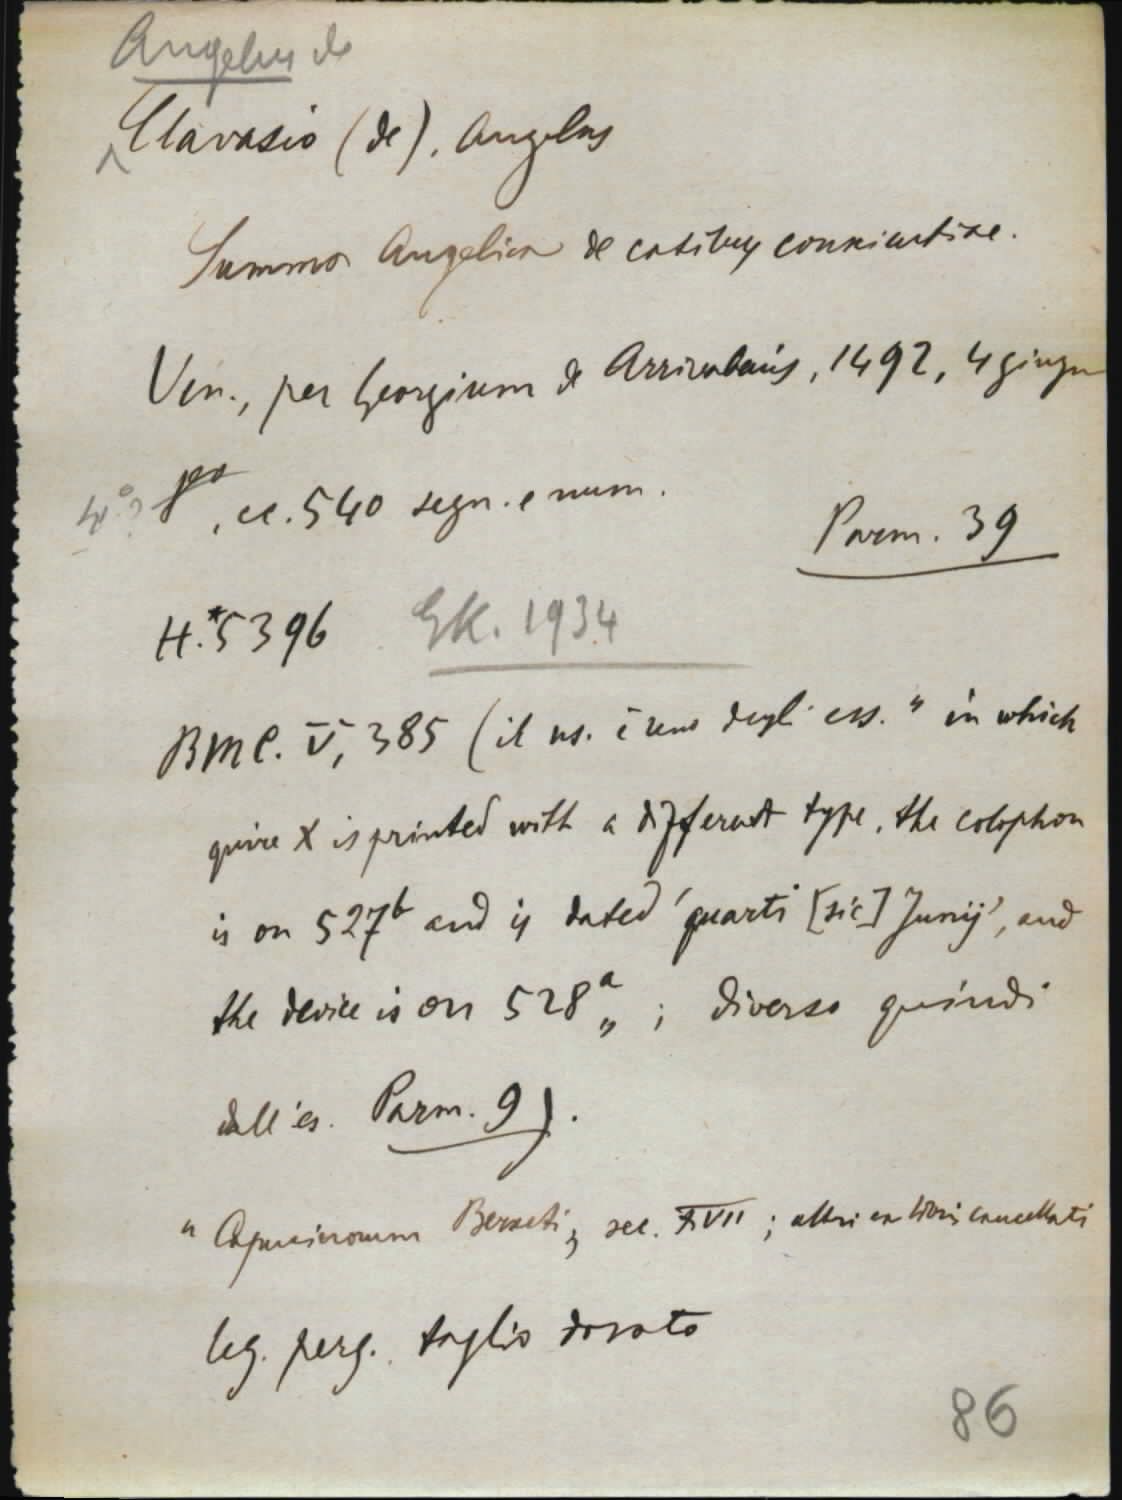 Angelus de
Clavasio (de), Angelus
Summa Angelica de casibus conscientiae.
Ven., per Georgium de Arrivabenis, 1492, 4 giugn
4°? 8vo, cc. 540 segn. e num.
Parm. 39
H.*5396 GK. 1934
BMC. V, 385 (il ns. è uno degli ess. " in which
quire X is printed with a different type, the colophon
is on 527b and is dated 'quarti [sic] Junij', and
the device is on 528a „ ; diverso quindi
dall'es. Parm. 9).
" Capucinorum Berseti„ sec. XVII ; altri ex libris cancellati
leg. perg. taglio dorato
86